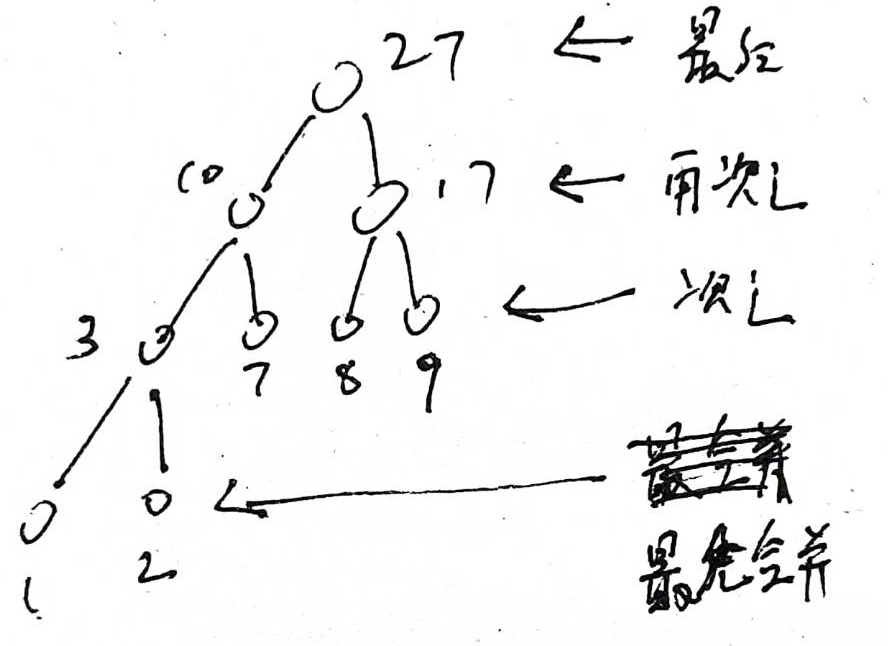 27 ← 最后
10 17 ← 再次之
3 7 8 9 ← 次之
1 2 ← 最先合并